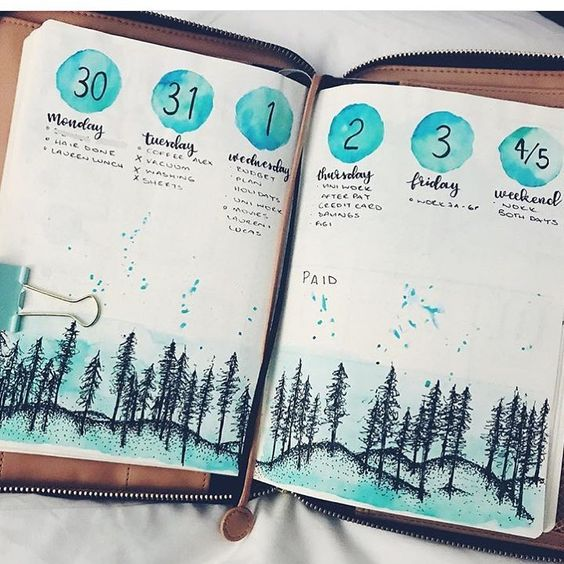 30
monday
HAIR DONE
LAUREN LUNCH
31
tuesday
COFFEE ALEX
x VACUUM
x WASHING
x SHEETS
1
wednesday
BUDGET
PLAN
HOLIDAYS
UNI WORK
MOVIES
LAUREN
LUCAS
2
thursday
UNI WORK
AFTER PAY
CREDIT CARD
SAVINGS
3
friday
WORK
4/5
weekend
WORK
BOTH DAYS
PAID